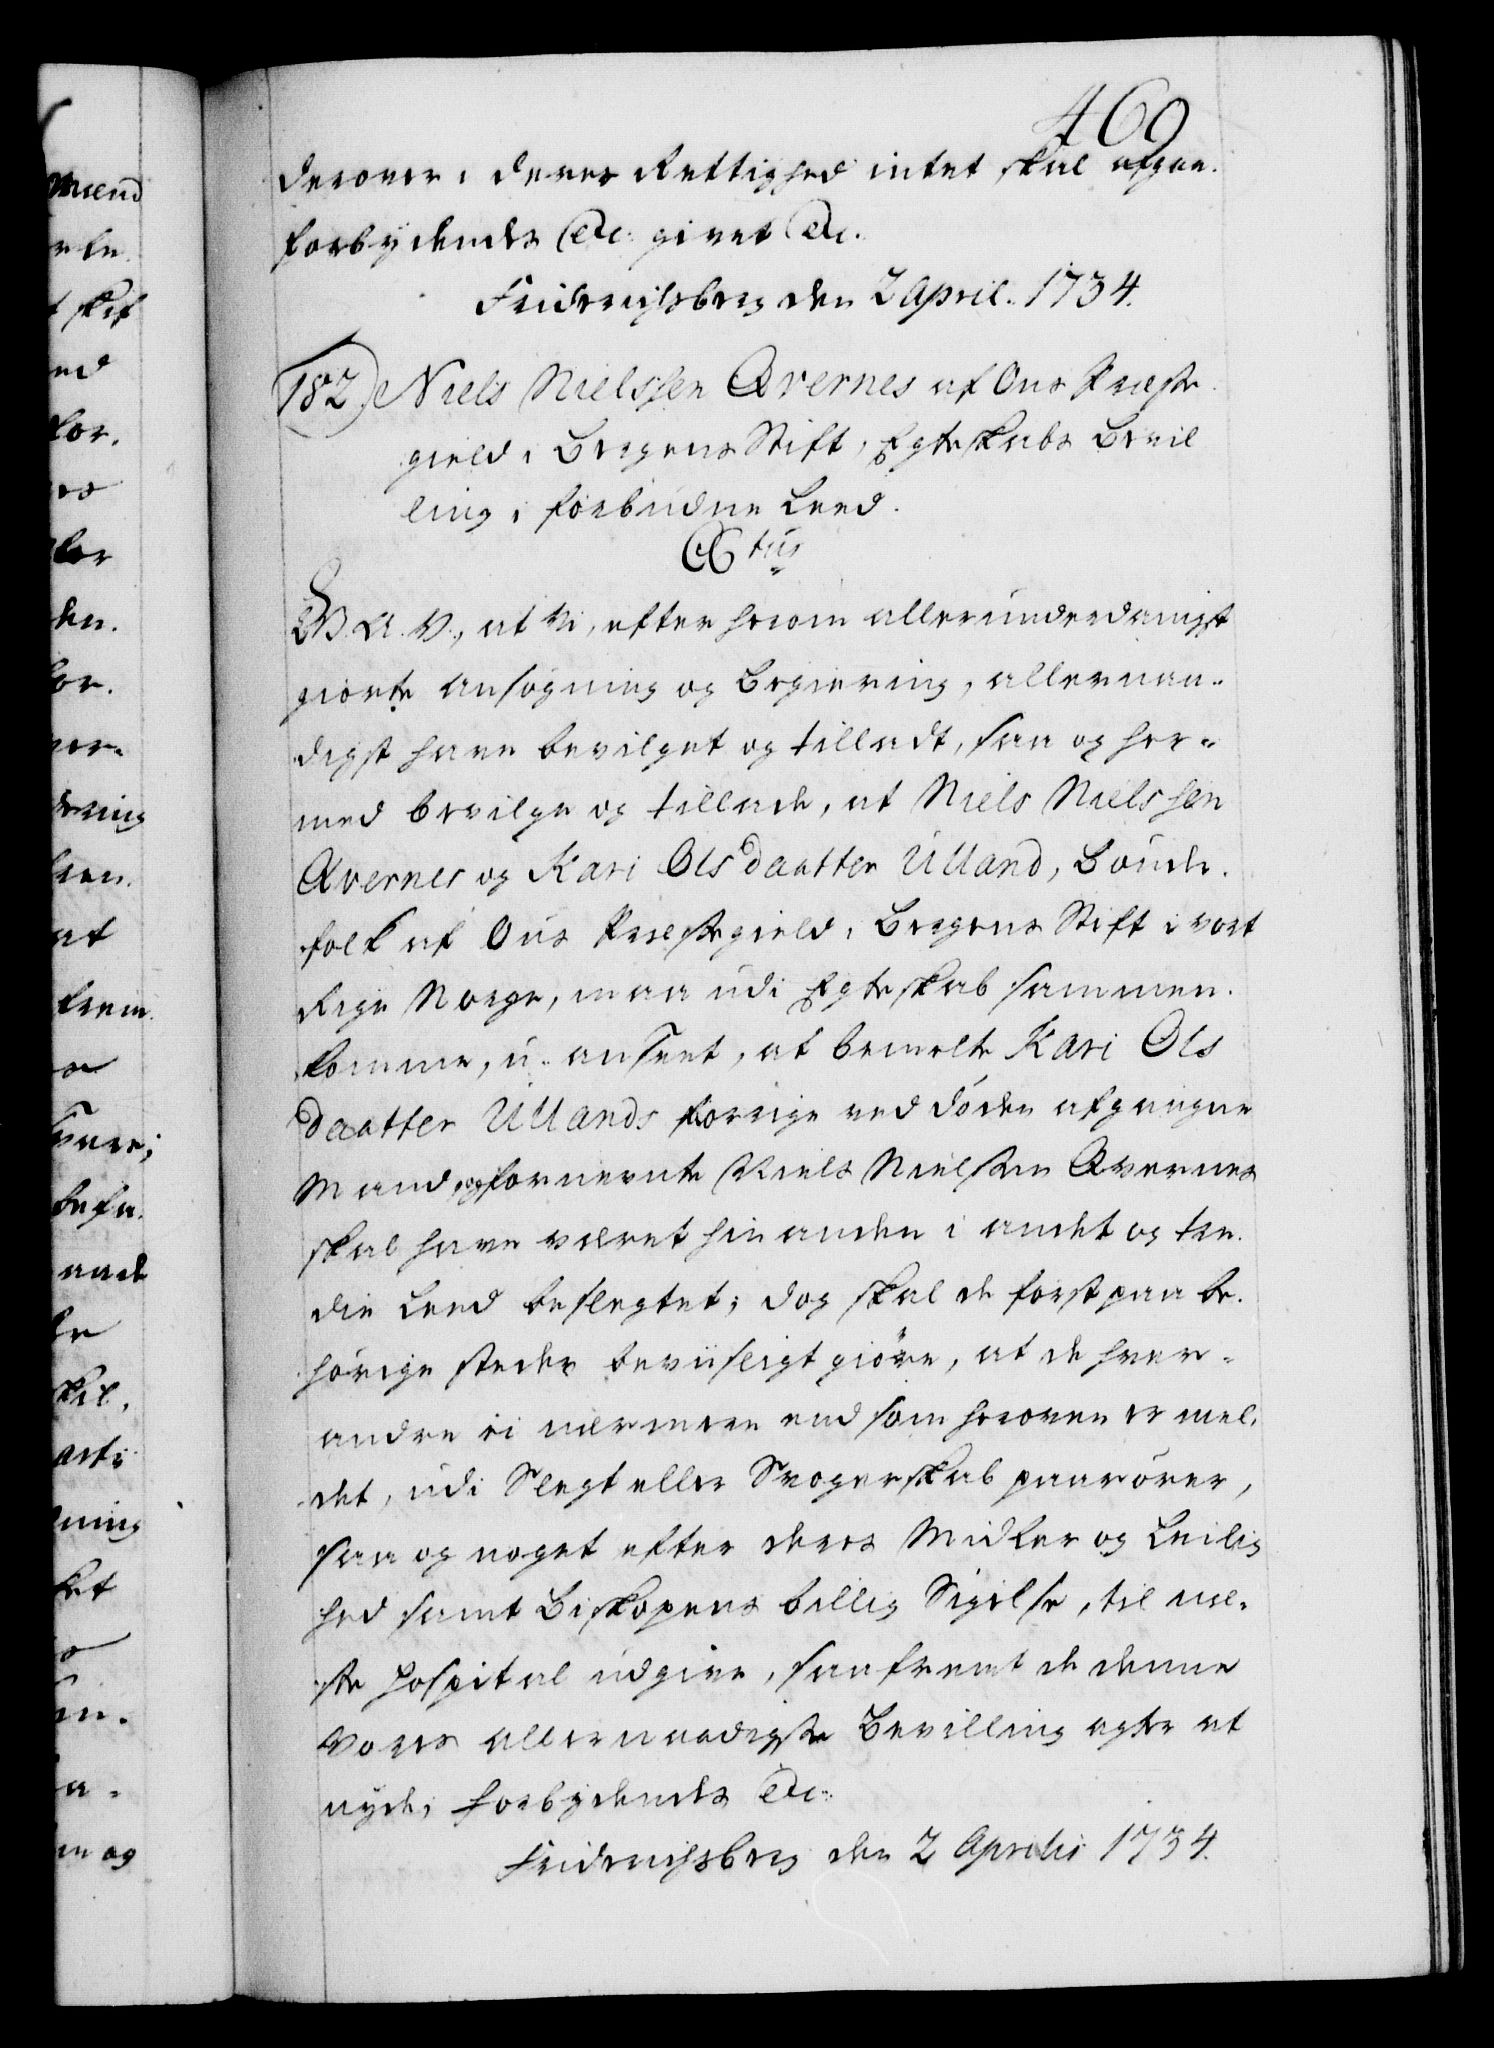 469
derover i deres Rettighed intet skal afgaae.
forbydendes &c: givet &c.
Friderichsberg den 2 April. 1734.
182) Niels Nielssen Qvernes af Ous Præste-
gield i Bergens Stift, Egteskabs Bevil
ling i forbudne Leed.
C6tus
G. A. V., at Vi, efter herom allerunderdanigst
giorte Ansøgning og Begiering, allernaa-
digst have bevilget og tilladt, saa og her-
med bevilge og tillade, at Niels Nielssen
Qvernes og Kari Olsdaatter Ulland, Bønde-
folk af Ous Præstegield i Bergens Stift i vort
Rige Norge, maa udi Egteskab sammen-
komme, u-anseet, at bemelte Kari Ols
daatter Ullands forrige ved døden afgangne
Mand, og fornevnte Niels Nielssen Qvernes
skal have været hinanden i andet og tre-
die Leed beslegtet; dog skal de først paa be-
hørige steder beviisligt giøre, at de hver-
andre ei nærmere end som herover er mel-
det, udi Slegt eller Svogerskab paarører,
saa og noget efter deres Midler og Leilig
hed samt Biskopens billig Sigelse, til næ-
ste Hospital udgive, saafremt de denne
Vores allernaadigste Bevilling agte at
nyde, forbydendes &c:
Friderichsberg den 2 Aprilis 1734.